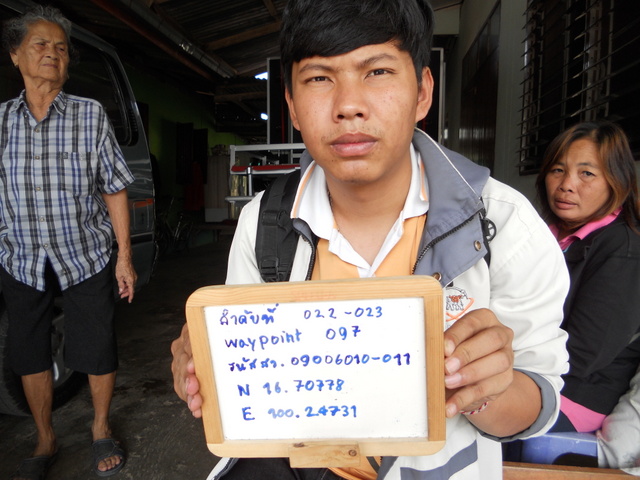 ลำดับที่ 022-023
waypoint 097
รหัสสว. 09006010-011
N 16.70778
E 100.24731